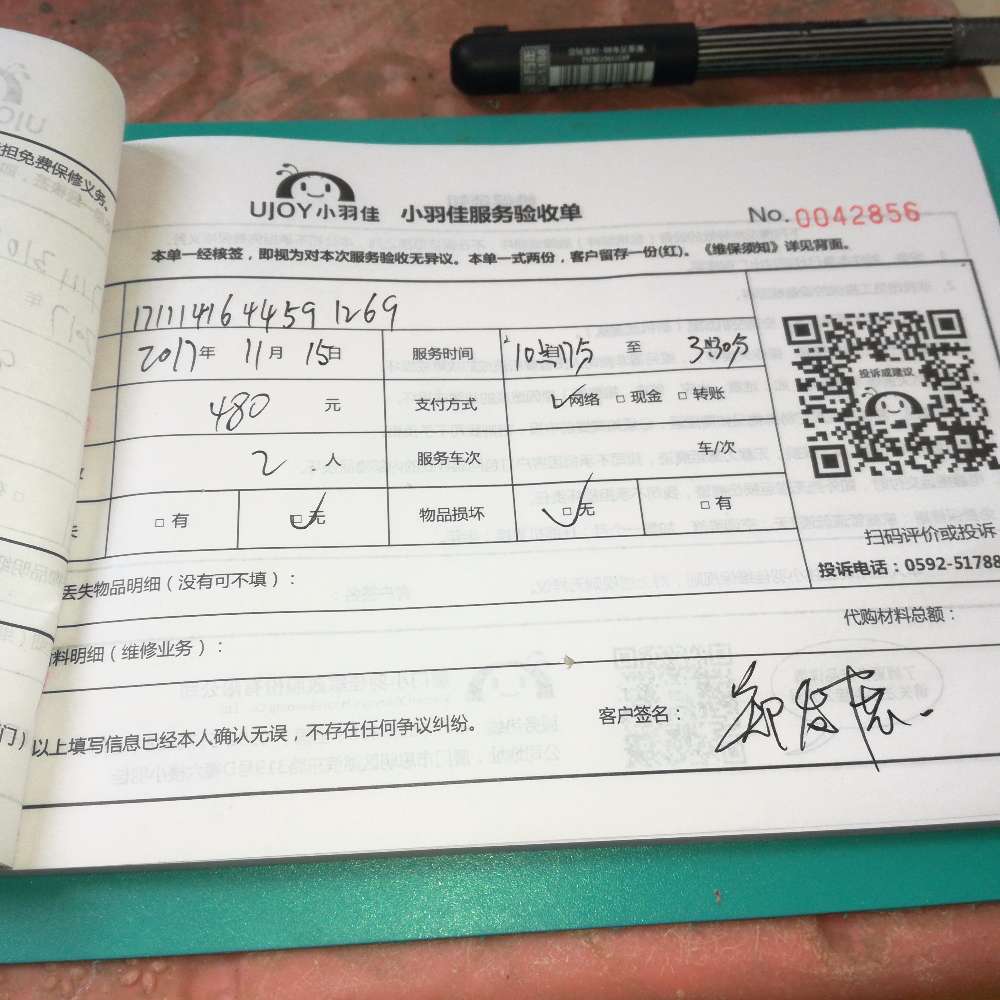 担免费保修义务。
UJOY小羽佳 小羽佳服务验收单
No.0042856
本单一经核签，即视为对本次服务验收无异议。本单一式两份，客户留存一份(红)。《维保须知》详见背面。
171114164459 1269
2017年 11月 15日 服务时间 10 17分 至 3 30分
480 元 支付方式 □网络 □现金 □转账
投诉或建议
2 人 服务车次 车/次
□有 □无 物品损坏 □无 □有
扫码评价或投诉
投诉电话：0592-51788
丢失物品明细（没有可不填）：
代购材料总额：
料明细（维修业务）：
门）以上填写信息已经本人确认无误，不存在任何争议纠纷。
客户签名：